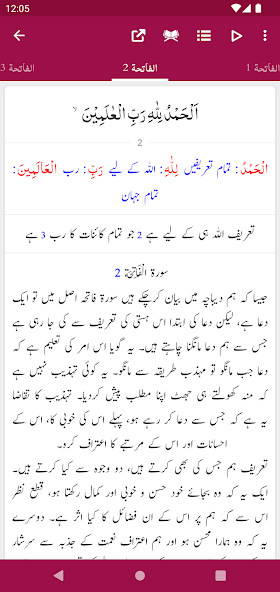 12:05
الفاتحة 1
الفاتحة 2
الفاتحة 3
اَلْحَمْدُ لِلّٰهِ رَبِّ الْعٰلَمِیْنَ ۙ
2
الْحَمْدُ: تمام تعریفیں لِلّٰهِ: اللہ کے لیے رَبِّ: رب الْعَالَمِينَ:
تمام جہان
تعریف اللہ ہی کے لیے ہے 2 جو تمام کائنات کا رب 3 ہے
سورة الْفَاتِحَة 2
جیسا کہ ہم دیباچہ میں بیان کرچکے ہیں سورۃ فاتحہ اصل میں تو ایک
دعا ہے، لیکن دعا کی ابتدا اس ہستی کی تعریف سے کی جا رہی ہے
جس سے ہم دعا مانگنا چاہتے ہیں۔ یہ گویا اس امر کی تعلیم ہے کہ
دعا جب مانگو تو مہذب طریقہ سے مانگو۔ یہ کوئی تہذیب نہیں ہے
کہ منہ کھولتے ہی جھٹ اپنا مطلب پیش کردیا۔ تہذیب کا تقاضا
یہ ہے کہ جس سے دعا کر رہے ہو، پہلے اس کی خوبی کا، اس کے
احسانات اور اس کے مرتبے کا اعتراف کرو۔
تعریف ہم جس کی بھی کرتے ہیں، دو وجوہ سے کیا کرتے ہیں۔
ایک یہ کہ وہ بجائے خود حسن و خوبی اور کمال رکھتا ہو، قطع نظر
اس سے کہ ہم پر اس کے ان فضائل کا کیا اثر ہے۔ دوسرے
یہ کہ وہ ہمارا محسن ہو اور ہم اعتراف نعمت کے جذبہ سے سرشار